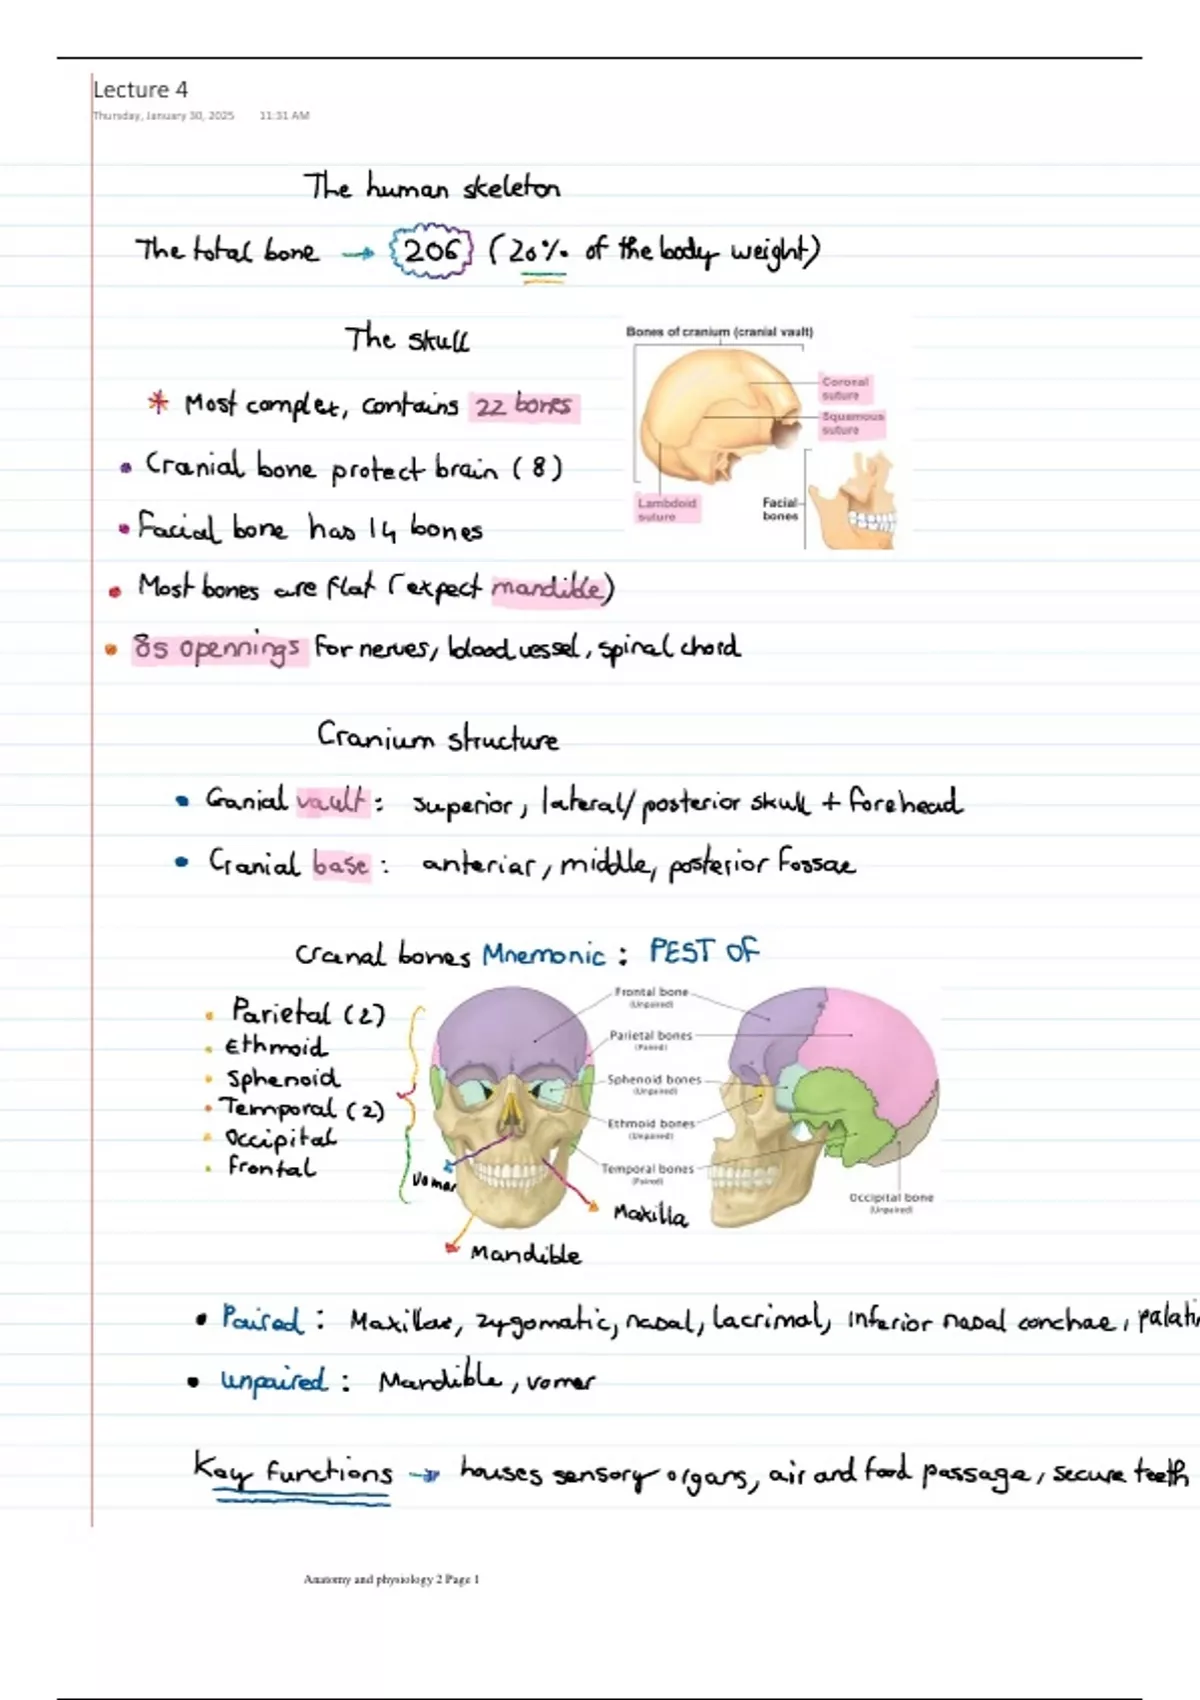 Lecture 4
Thursday, January 30, 2025 11:31 AM
The human skeleton
The total bone → 206 (20% of the body weight)
The skull
Bones of cranium (cranial vault)
Coronal
suture
Squamous
suture
Lambdoid
suture
Facial
bones
* Most complex, contains 22 bones
• Cranial bone protect brain (8)
• Facial bone has 14 bones
• Most bones are flat (expect mandible)
• 85 opennings for nerves, blood vessel, spinal chord
Cranium structure
• Cranial vault : superior, lateral/posterior skull + forehead
• Cranial base : anteriar, middle, posterior fossae
Cranal bones Mnemonic : PEST OF
• Parietal (2)
• Ethmoid
• Sphenoid
• Temporal (2)
• Occipital
• frontal
Frontal bone
(Unpaired)
Parietal bones
(Paired)
Sphenoid bones
(Unpaired)
Ethmoid bones
(Unpaired)
Temporal bones
(Paired)
Occipital bone
(Unpaired)
Vomer
Maxilla
Mandible
• Paired : Maxillae, zygomatic, nasal, lacrimal, inferior nasal conchae, palati
• unpaired : Mandible, vomer
Key functions → houses sensory organs, air and food passage, secure teeth
Anatomy and physiology 2 Page 1